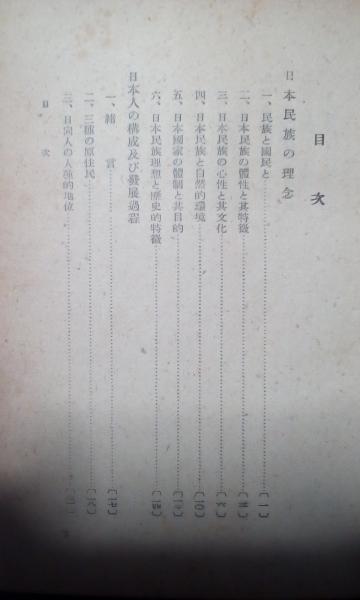 目次
日本民族の理念
一、民族と國民と……〔一〕
二、日本民族の體性と其特徴
三、日本民族の心性と其文化
四、民族と自然的環境……〔一〇〕
五、日本國家の體制と其目的
六、日本民族理想と歷史的特徴
日本人の構成及び發展過程
一、緒言
二、三種の原住民
三、日向人の人種的地位
目次